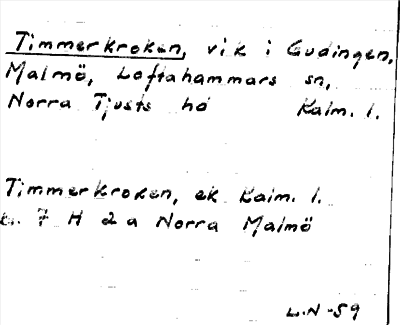 Timmerkroken, vik i Gudingen,
Malmö, Loftahammars sn,
Norra Tjusts hd Kalm. l.
Timmerkroken, ek Kalm. l.
bl. 7 H 2 a Norra Malmö
L.N -59